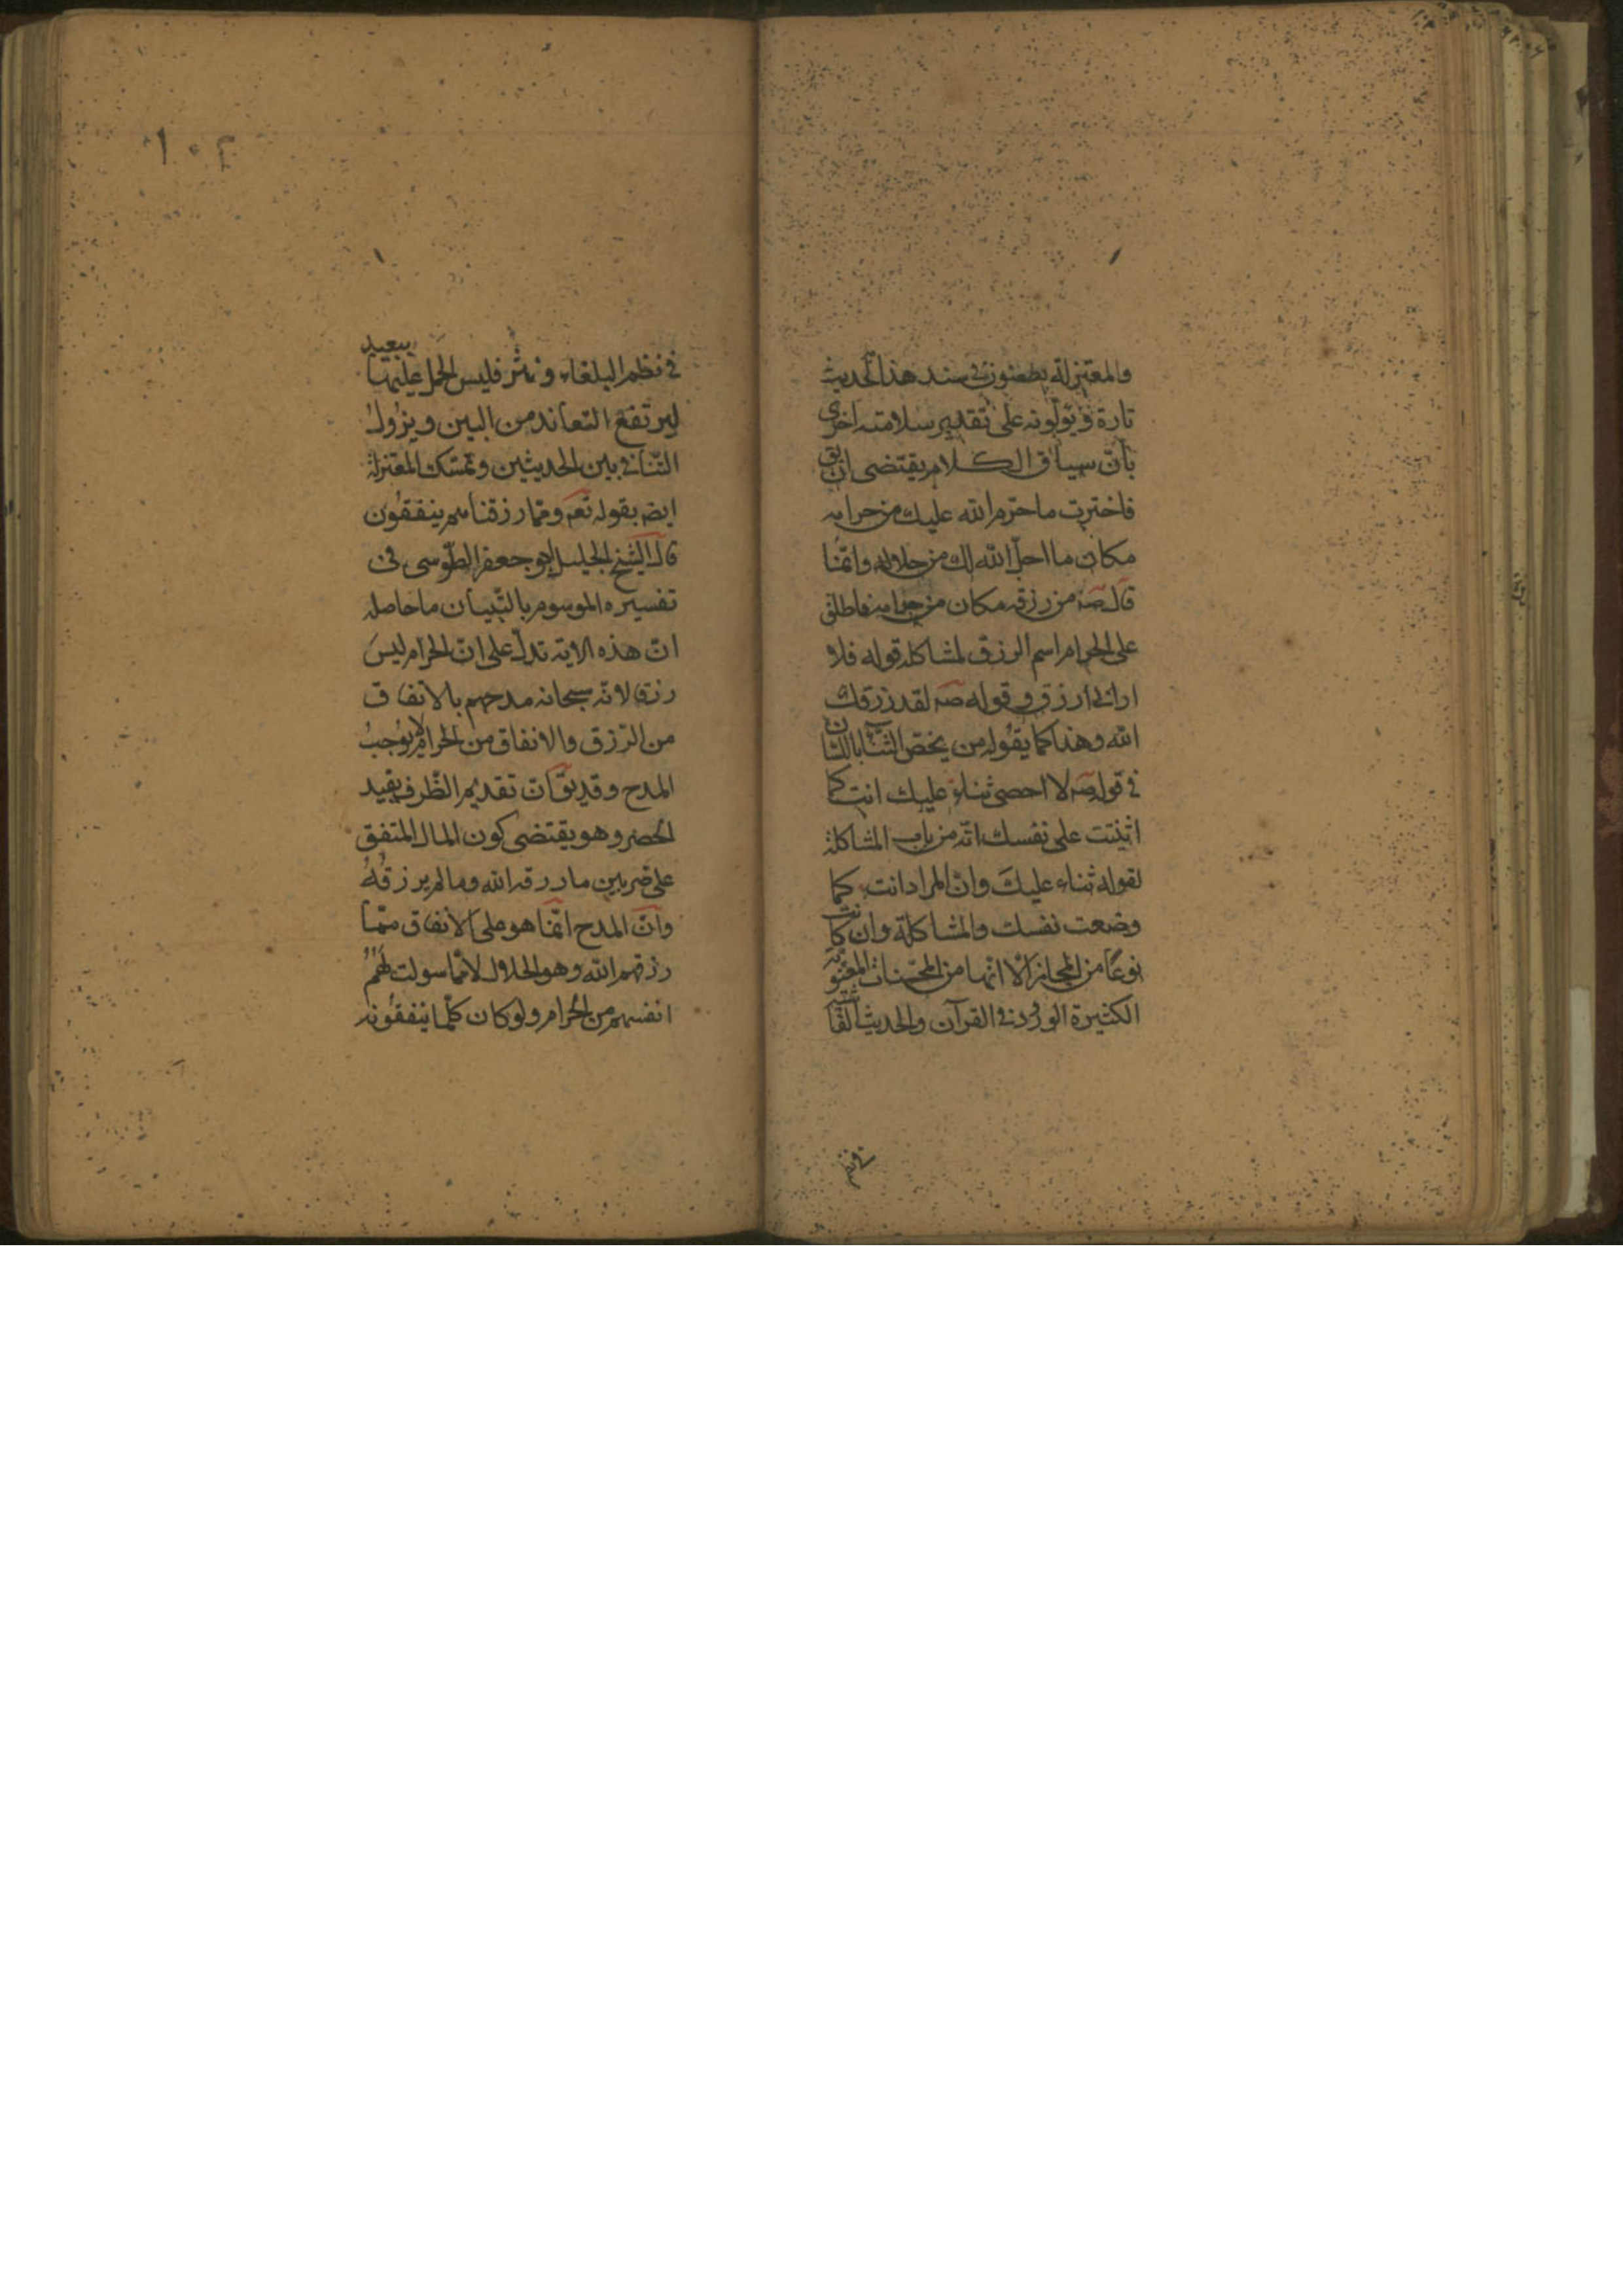 والمعتزلة يطعنون في سند هذا الحديث
تارة ويؤلونه على تقدير سلامته اخرى
بان سياق الكلام يقتضى ان يق
فاخترت ما حرم الله عليك من حرامه
مكان ما احل الله لك من حلاله وانما
قال صه من رزقه مكان من حرامه فاطلق
على الحرام اسم الرزق لمشاكلة قوله فلا
ارانى ارزق وقوله صه لقد رزقك
الله وهذا كما يقوله من يخص الثناء باللسان
في قوله صه لا احصى ثناء عليك انت كما
اثنيت على نفسك انه من باب المشاكلة
لقوله ثناء عليك وان المراد انت كما
وضعت نفسك والمشاكلة وان كانت
نوعا من المجاز الا انها من المحسنات المعنوية
الكثيرة الورود في القرآن والحديث الفاشية
في نظم
١٠٢
في نظم البلغاء ونثرهم فليس الحمل عليها ببعيد
ليرتفع التعاند من البين ويزول
التنافي بين الحديثين وتمسك المعتزلة
ايضه بقوله تعه ومما رزقناهم ينفقون
قال الشيخ الجليل ابو جعفر الطوسى فى
تفسيره الموسوم بالتبيان ما حاصله
ان هذه الاية تدل على ان الحرام ليس
رزقا لانه سبحانه مدحهم بالانفاق
من الرزق والانفاق من الحرام لا يوجب
المدح وقد يق ان تقديم الظرف يفيد
الحصر وهو يقتضى كون المال المنفق
على ضربين ما رزقه الله وما لم يرزقه
وان المدح انما هو على الانفاق مما
رزقهم الله وهو الحلال لا مما سولت لهم
انفسهم من الحرام ولو كان كلما ينفقونه